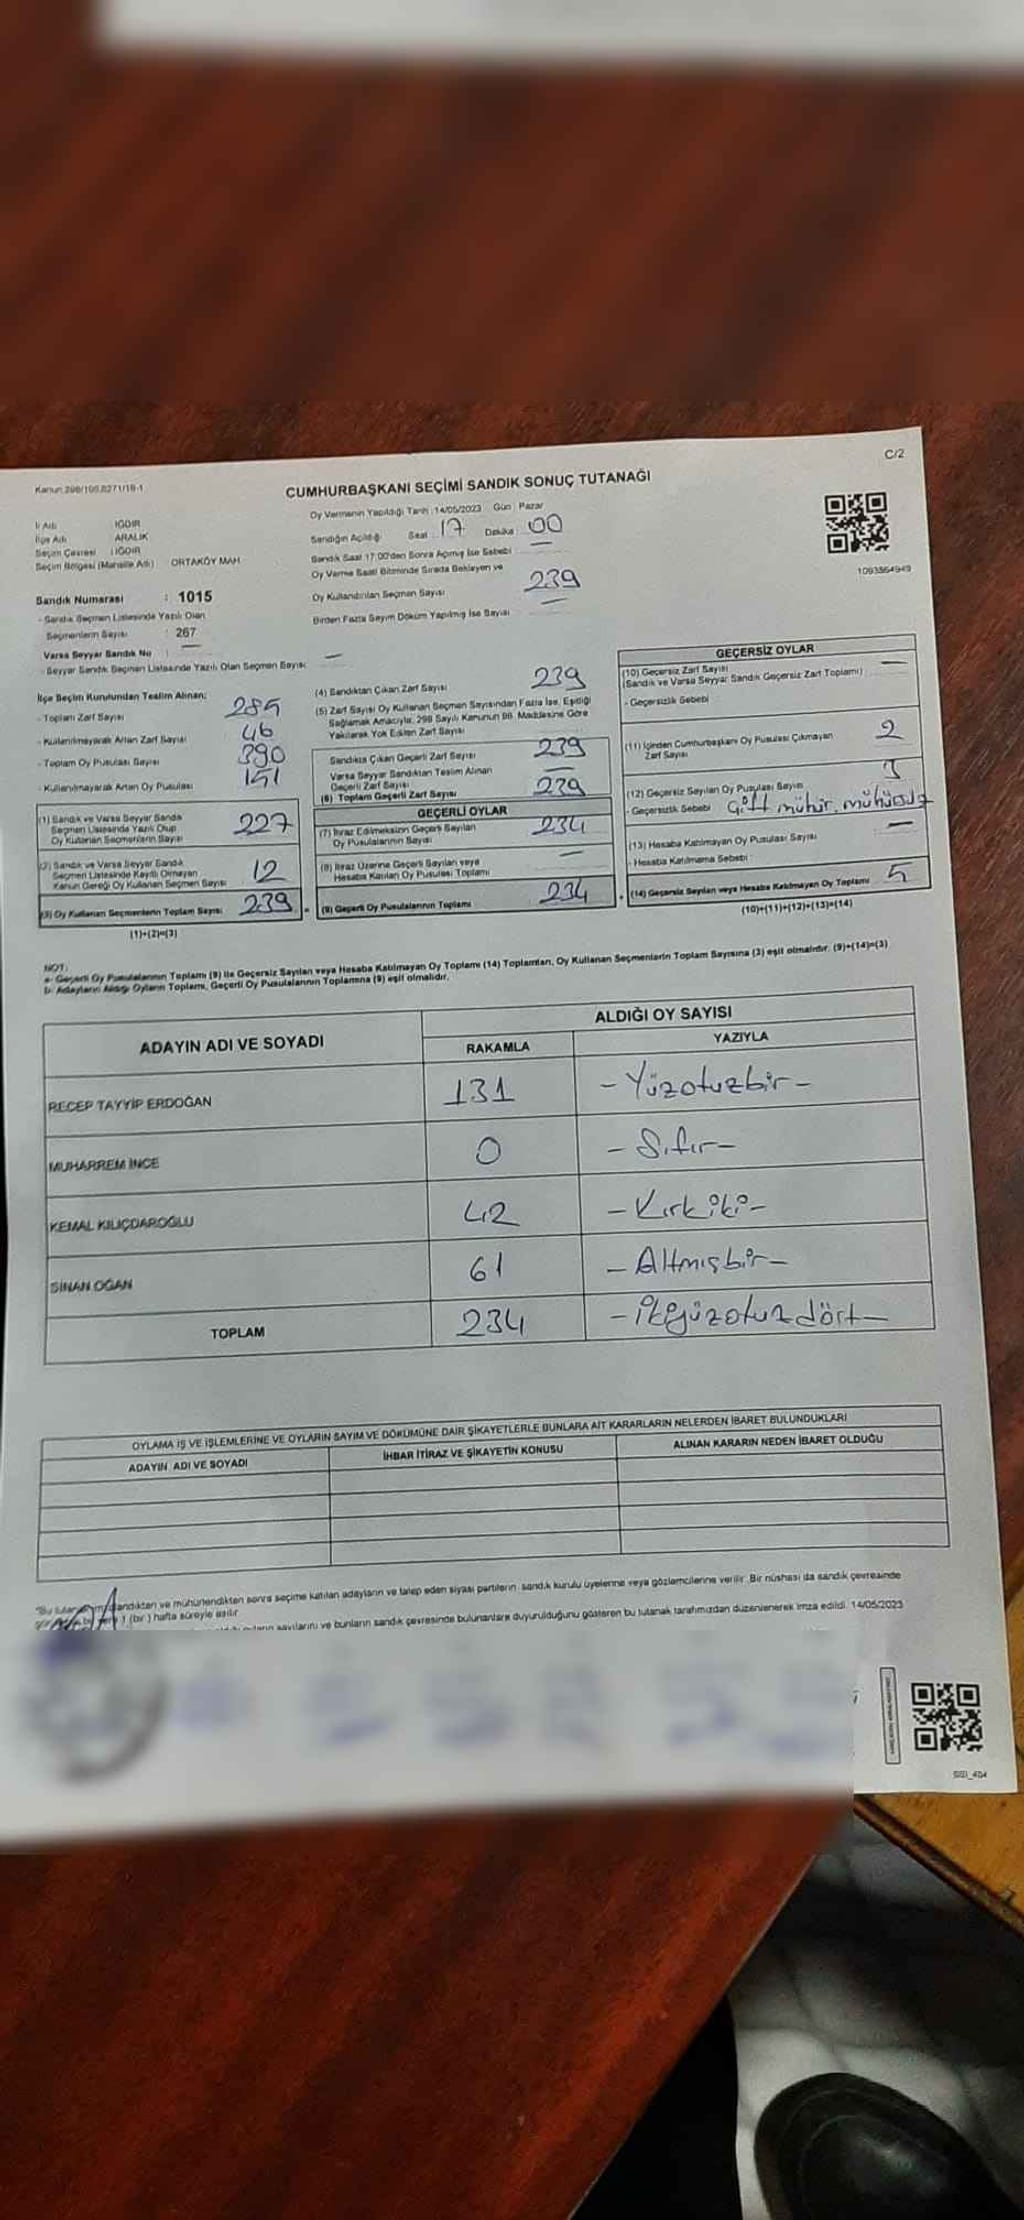 C/2
Kanun 298/109,6271/18-1
CUMHURBAŞKANI SEÇİMİ SANDIK SONUÇ TUTANAĞI
İl Adı IĞDIR
İlçe Adı ARALIK
Seçim Çevresi IĞDIR
Seçim Bölgesi (Mahalle Adı) ORTAKÖY MAH.
Oy Vermenin Yapıldığı Tarih 14/05/2023 Gün Pazar
Sandığın Açıldığı Saat 17 Dakika 00
Sandık Saat 17:00'den Sonra Açılmış İse Sebebi —
Oy Verme Saati Bitiminde Sırada Bekleyen ve
Oy Kullandırılan Seçmen Sayısı 239
Birden Fazla Sayım Döküm Yapılmış İse Sayısı —
1093564949
Sandık Numarası : 1015
- Sandık Seçmen Listesinde Yazılı Olan
Seçmenlerin Sayısı : 267
Varsa Seyyar Sandık No : —
- Seyyar Sandık Seçmen Listesinde Yazılı Olan Seçmen Sayısı —
İlçe Seçim Kurulundan Teslim Alınan;
- Toplam Zarf Sayısı 285
- Kullanılmayarak Artan Zarf Sayısı 46
- Toplam Oy Pusulası Sayısı 390
- Kullanılmayarak Artan Oy Pusulası 151
(1) Sandık ve Varsa Seyyar Sandık
Seçmen Listesinde Yazılı Olup
Oy Kullanan Seçmenlerin Sayısı 227
(2) Sandık ve Varsa Seyyar Sandık
Seçmen Listesinde Kayıtlı Olmayan
Kanun Gereği Oy Kullanan Seçmen Sayısı 12
(3) Oy Kullanan Seçmenlerin Toplam Sayısı 239
(1)+(2)=(3)
(4) Sandıktan Çıkan Zarf Sayısı 239
(5) Zarf Sayısı Oy Kullanan Seçmen Sayısından Fazla İse, Eşitliği
Sağlamak Amacıyla, 298 Sayılı Kanunun 98. Maddesine Göre
Yakılarak Yok Edilen Zarf Sayısı —
Sandıkta Çıkan Geçerli Zarf Sayısı 239
Varsa Seyyar Sandıktan Teslim Alınan
Geçerli Zarf Sayısı —
(6) Toplam Geçerli Zarf Sayısı 239
GEÇERLİ OYLAR
(7) İtiraz Edilmeksizin Geçerli Sayılan
Oy Pusulalarının Sayısı 234
(8) İtiraz Üzerine Geçerli Sayılan veya
Hesaba Katılan Oy Pusulası Toplamı —
(9) Geçerli Oy Pusulalarının Toplamı 234
GEÇERSİZ OYLAR
(10) Geçersiz Zarf Sayısı
(Sandık ve Varsa Seyyar Sandık Geçersiz Zarf Toplamı) —
- Geçersizlik Sebebi
(11) İçinden Cumhurbaşkanı Oy Pusulası Çıkmayan
Zarf Sayısı 2
(12) Geçersiz Sayılan Oy Pusulası Sayısı 3
- Geçersizlik Sebebi Çift mühür, mühürsüz
(13) Hesaba Katılmayan Oy Pusulası Sayısı —
- Hesaba Katılmama Sebebi :
(14) Geçersiz Sayılan veya Hesaba Katılmayan Oy Toplamı 5
(10)+(11)+(12)+(13)=(14)
NOT:
a- Geçerli Oy Pusulalarının Toplamı (9) ile Geçersiz Sayılan veya Hesaba Katılmayan Oy Toplamı (14) Toplamları, Oy Kullanan Seçmenlerin Toplam Sayısına (3) eşit olmalıdır. (9)+(14)=(3)
b- Adayların Aldığı Oyların Toplamı, Geçerli Oy Pusulalarının Toplamına (9) eşit olmalıdır.
ADAYIN ADI VE SOYADI
ALDIĞI OY SAYISI
RAKAMLA YAZIYLA
RECEP TAYYİP ERDOĞAN 131 - Yüzotuzbir -
MUHARREM İNCE 0 - Sıfır -
KEMAL KILIÇDAROĞLU 42 - Kırkiki -
SİNAN OĞAN 61 - Altmışbir -
TOPLAM 234 - ikiyüzotuzdört -
OYLAMA İŞ VE İŞLEMLERİNE VE OYLARIN SAYIM VE DÖKÜMÜNE DAİR ŞİKAYETLERLE BUNLARA AİT KARARLARIN NELERDEN İBARET BULUNDUKLARI
ADAYIN ADI VE SOYADI İHBAR İTİRAZ VE ŞİKAYETİN KONUSU ALINAN KARARIN NEDEN İBARET OLDUĞU
*Bu tutanak imzalandıktan ve mühürlendikten sonra seçime katılan adayların ve talep eden siyasi partilerin sandık kurulu üyelerine veya gözlemcilerine verilir. Bir nüshası da sandık çevresinde
1 (bir) hafta süreyle asılır
oyların sayılarını ve bunların sandık çevresinde bulunanlara duyurulduğunu gösteren bu tutanak tarafımızdan düzenlenerek imza edildi. 14/05/2023